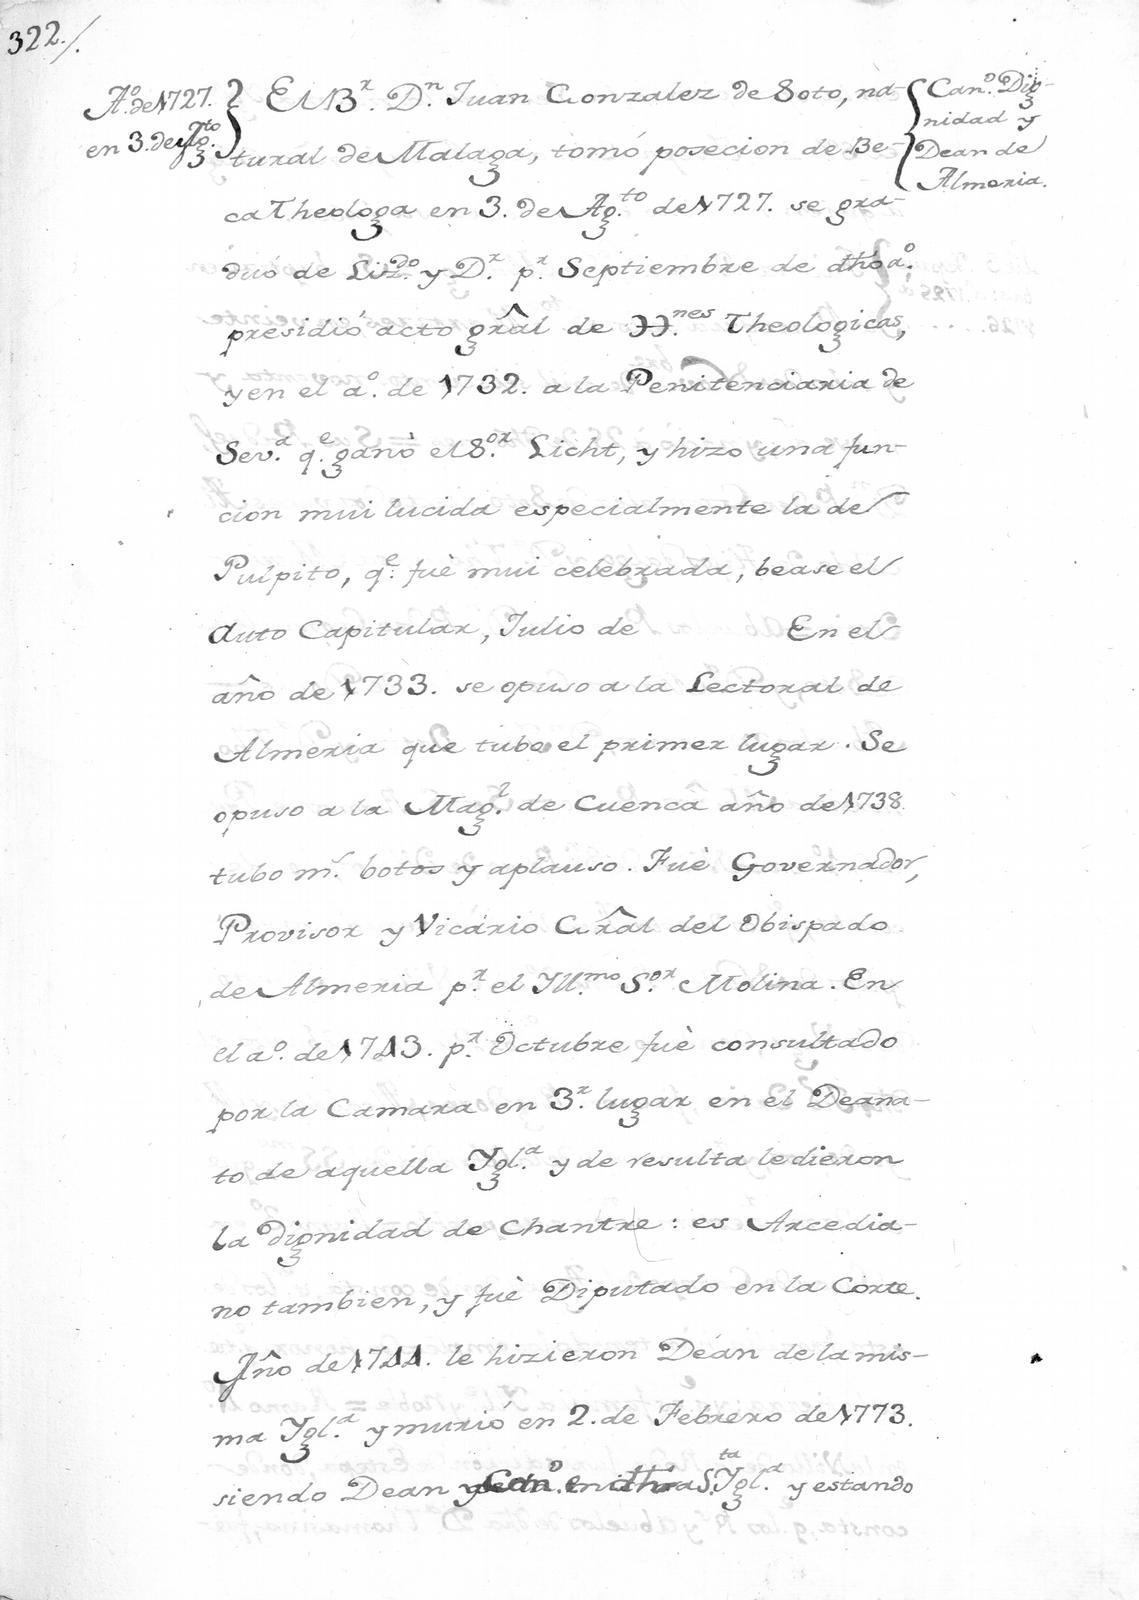 322./.
A.º de 1727.
en 3. de Ag.to
El B.r D.n Juan Gonzalez de Soto, na-
tural de Malaga, tomó posecion de Be-
ca Theologa en 3. de Ag.to de 1727. se gra-
duo de Liz.do y D.r p.r Septiembre de dho a.º
presidió acto grâl de H.nes Theologicas,
y en el a.º de 1732. a la Penitenciaria de
Sev.a q.e ganò el S.or Licht, y hizo una fun-
cion mui lucida especialmente la de
Pulpito, q.e fuè mui celebrada, bease el
Auto Capitular, Julio de En el
año de 1733. se opuso a la Lectoral de
Almeria que tubo el primer lugar. Se
opuso a la Mag.l de Cuenca año de 1738.
tubo m.s botos y aplauso. Fuè Governador,
Provisor y Vicario Grâl del Obispado
de Almeria p.r el Yll.mo S.or Molina. En
el a.º de 1743. p.r Octubre fuè consultado
por la Camara en 3.r lugar en el Deana-
to de aquella Ygl.a y de resulta le dieron
la dignidad de Chantre: es Arcedia-
no tambien, y fuè Diputado en la Corte.
Año de 1744. le hizieron Deán de la mis-
ma Ygl.a y murió en 2. de Febrero de 1773.
siendo Dean y Can.º en dha S.ta Ygl.a y estando
Can.º Dig-
nidad y
Dean de
Almeria.